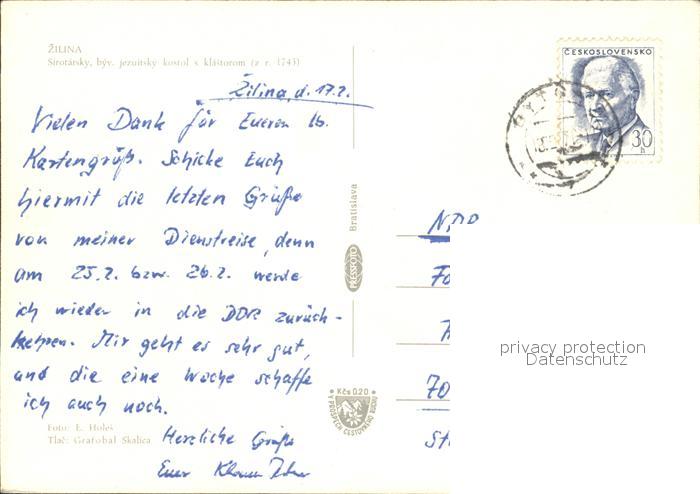 ŽILINA
Sirotársky, býv. jezuitsky kostol s kláštorom (z r. 1743)
Žilina, d. 17.2.
Vielen Dank für Eueren lb.
Kartengrüß. Schicke Euch
hiermit die letzten Grüße
von meiner Dienstreise, denn
am 25.2. bzw. 26.2. werde
ich wieder in die DDR zurück-
kehren. Mir geht es sehr gut,
und die eine Woche schaffe
ich auch noch.
Herzliche Grüße
Euer Klaus
Foto: E. Holeš
Tlač: Grafobal Skalica
Bratislava
PRESSFOTO
Kčs 0,20
V PROSPECH CESTOVNÉHO RUCHU
ČESKOSLOVENSKO
30 h
Fa
70
St
privacy protection
Datenschutz